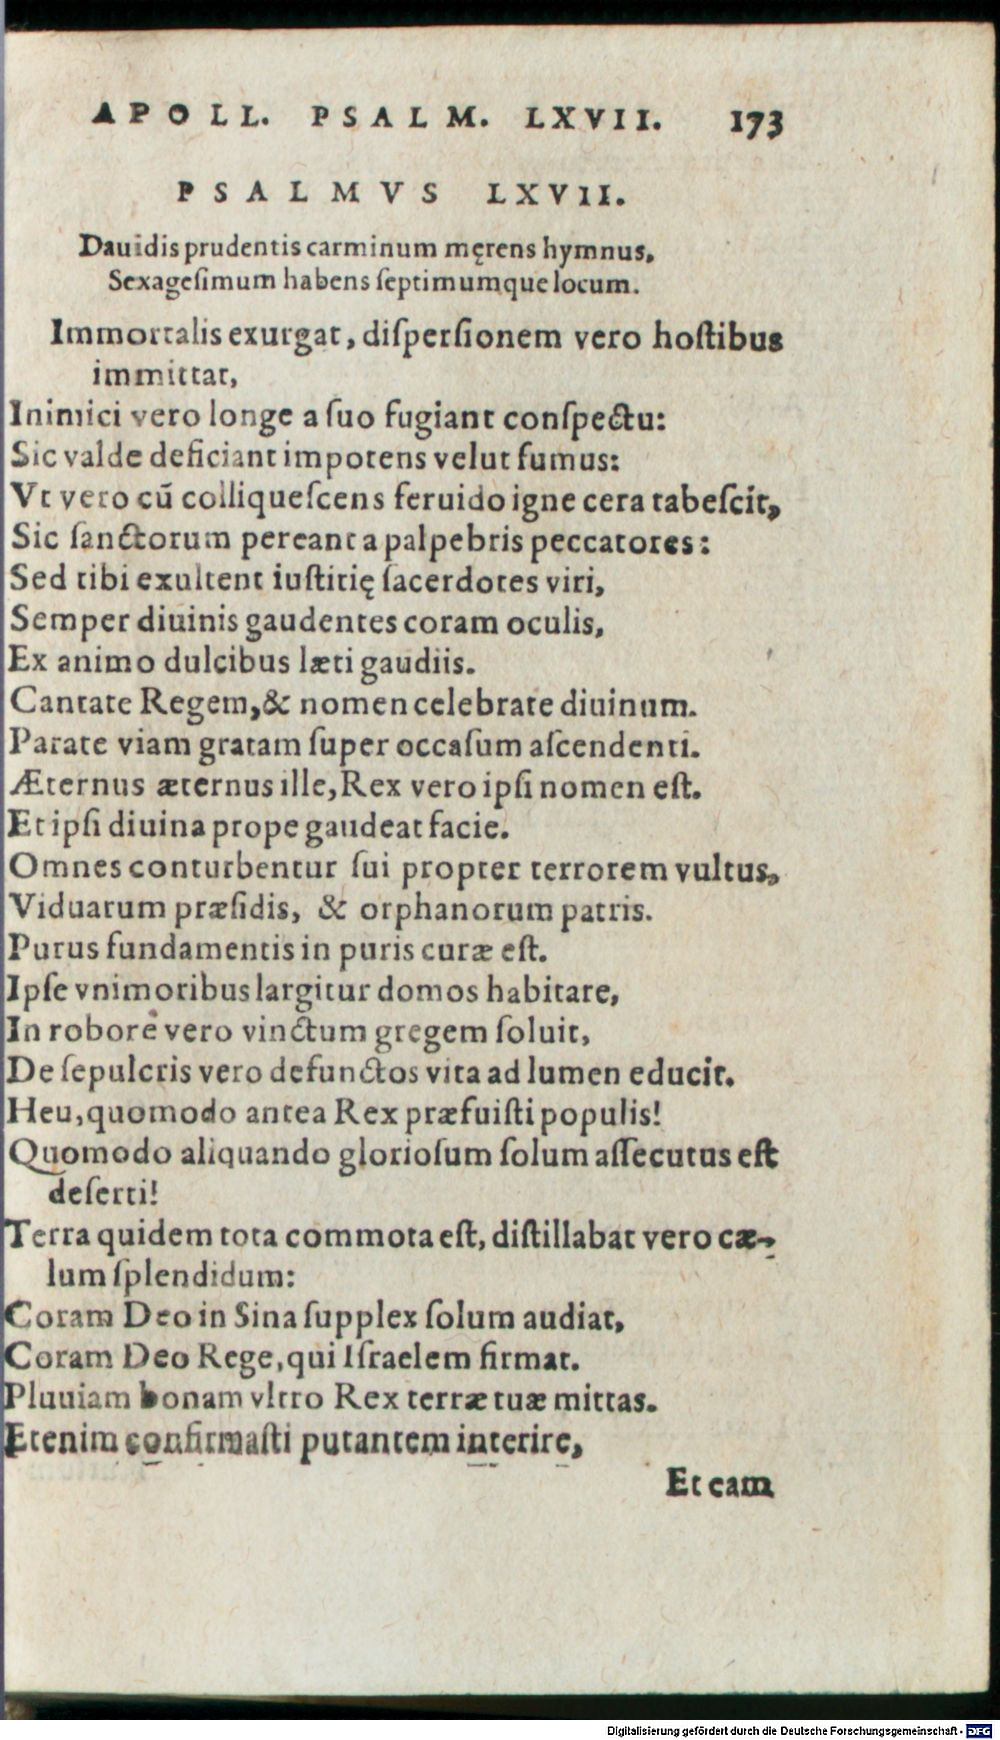 APOLL. PSALM. LXVII. 173
PSALMVS LXVII.
Dauidis prudentis carminum męrens hymnus,
Sexagesimum habens septimumque locum.
Immortalis exurgat, dispersionem vero hostibus
immittat,
Inimici vero longe a suo fugiant conspectu:
Sic valde deficiant impotens velut fumus:
Vt vero cū colliquescens feruido igne cera tabescit,
Sic sanctorum pereant a palpebris peccatores:
Sed tibi exultent iustitię sacerdotes viri,
Semper diuinis gaudentes coram oculis,
Ex animo dulcibus læti gaudiis.
Cantate Regem, & nomen celebrate diuinum.
Parate viam gratam super occasum ascendenti.
Æternus æternus ille, Rex vero ipsi nomen est.
Et ipsi diuina prope gaudeat facie.
Omnes conturbentur sui propter terrorem vultus,
Viduarum præsidis, & orphanorum patris.
Purus fundamentis in puris curæ est.
Ipse vnimoribus largitur domos habitare,
In robore vero vinctum gregem soluit,
De sepulcris vero defunctos vita ad lumen educit.
Heu, quomodo antea Rex præfuisti populis!
Quomodo aliquando gloriosum solum assecutus est
deserti!
Terra quidem tota commota est, distillabat vero cæ-
lum splendidum:
Coram Deo in Sina supplex solum audiat,
Coram Deo Rege, qui Israelem firmat.
Pluuiam bonam vltro Rex terræ tuæ mittas.
Etenim confirmasti putantem interire,
Et eam
Digitalisierung gefördert durch die Deutsche Forschungsgemeinschaft - DFG